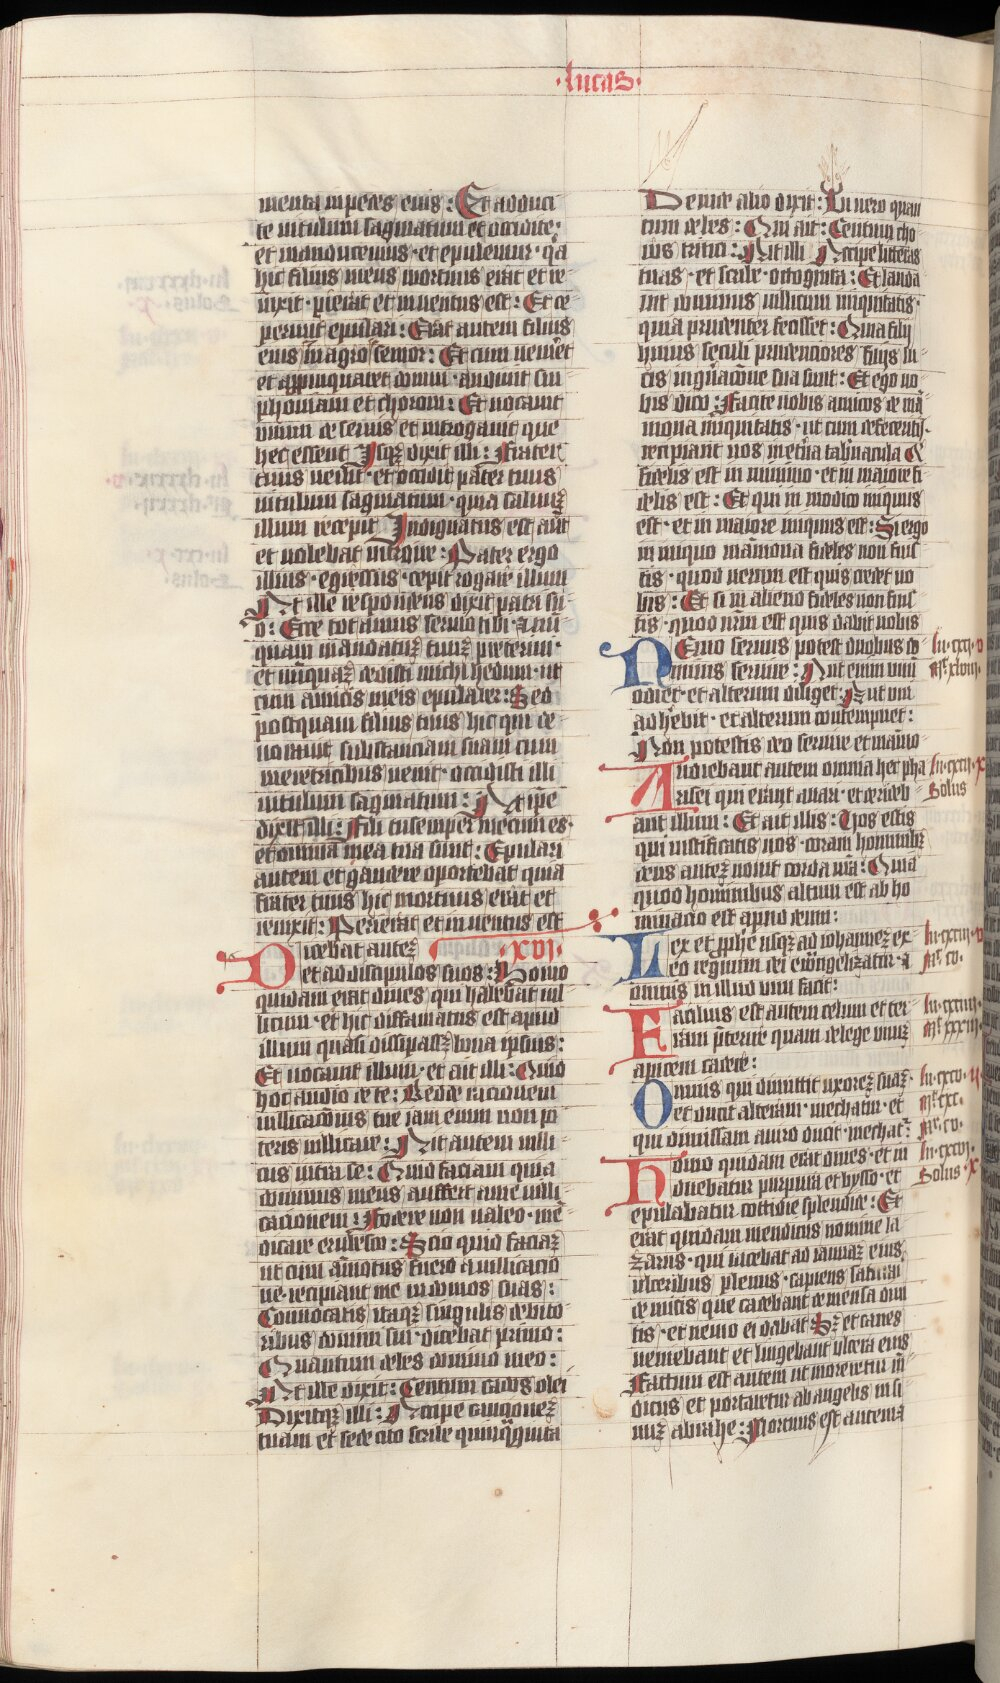 ·lucas·
menta in pedes eius: Et adduci
te uitulum saginatum et occidite:
et manducemus· et epulemur· qa
hic filius meus mortuus erat et re
uixit· pierat et inuentus est: Et ce
perunt epulari: Erat autem filius
eius in agro senior: Et cum ueniret
et appinquaret domui· audiuit sin
phoniam et chorum: Et uocauit
unum de seruis et introgauit que
hec essent Isqz dixit illi: Frater
tuus uenit· et occidit pater tuus
uitulum saginatum· quia saluuz
illum recepit Indignatus est aut
et nolebat intrare: Pater ergo
illius· egressus· cepit rogare illum
At ille respondens dixit patri su
o: Ecce tot annis seruio tibi· z nū
quam mandatuz tuuz preteriui·
et nūquaz dedisti michi hedum· ut
cum amicis meis epularer: Sed
postquam filius tuus hic qui de
uorauit substanciam suam cum
meretricibus uenit· occidisti illi
uitulum saginatum: At ipe
dixit illi: Fili tu semper mecum es·
et omnia mea tua sunt: Epulari
autem et gaudere oportebat quia
frater tuus hic mortuus erat et
reuixit: Perierat et inuentus est
Dicebat autez ·xvi·
et ad discipulos suos: Homo
quidam erat diues· qui habebat uil
licum· et hic diffamatus est apud
illum quasi dissipassz bona ipsius:
Et uocauit illum· et ait illi: Quid
hoc audio de te: Redde racionem
uillicacōnis tue jam enim non po
teris uillicare: Ait autem uilli
cus intra se: Quid faciam quia
dominus meus auffert a me uilli
cacionem: Fodere non ualeo· me
dicare erubesco: Scio quid faciaz
ut cum amotus fuero a uillicacio
ne· recipiant me in domos suas:
Conuocatis itaqz singulis debito
ribus domini sui· dicebat primo:
Quantum debes domino meo:
At ille dixit: Centum cados olei
Dixitqz illi: Accipe caucionez
tuam et sede cito scribe quinquginta
Deinde alio dixit: Tu uero quan
tum debes: Qui ait: Centum cho
ros tritici: Ait illi Accipe litteras
tuas· et scribe· octoginta: Et lauda
uit dominus uillicum iniquitatis·
quia prudenter fecisset: Quia filij
huius seculi prudenciores filijs lu
cis in gnacōne sua sunt: Et ego uo
bis dico: Facite uobis amicos de mā
mona iniquitatis· ut cum defeceritis·
recipiant uos in etna tabnacula Q
fidelis est in minimo· et in maiore fi
delis est: Et qui in modico iniquus
est· et in maiore iniquus est: Si ergo
in iniquo māmona fideles non fuis
tis· quod uerum est quis credet uo
bis: Et si in alieno fideles non fuis
tis· quod urm est quis dabit uobis
Nemo seruus potest duobus do
minis seruire: Aut enim unū
odiet· et alterum diliget: Aut uni
adhebit· et alterum contempnet:
Non potestis deo seruire et māmo
Audiebant autem omnia hec pha
risei qui erant auari· et derideb
ant illum: Et ait illis: Uos estis
qui iustificatis uos· coram hominibz
deus autez nouit corda ura: Quia
quod hominibus altum est ab ho
minacio est apud deum:
Lex et pphe usqz ad iohannez ex
eo regnum dei ewngelizatur· z
omnis in illud uim facit:
Facilius est autem celum et ter
ram pterire quam de lege unuz
apicem cadere:
Omnis qui dimittit uxorez suaz·
et ducit alteram· mechatur· et
qui dimissam a uiro ducit· mechat:
Homo quidam erat diues· et in
duebatur purpura et bysso· et
epulabatur cottidie splendide: Et
erat quidam mendicus nomine la
zarus· qui iacebat ad ianuaz eius
ulceribus plenus· cupiens saturai
de micis que cadebant de mensa diui
tis· et nemo ei dabat Sz et canes
ueniebant et lingebant ulcera eius
Factum est autem ut moreretur m
dicus et portaretur ab angelis in si
nuz abrahe: Mortuus est autem
lu·cxci·v
Mt·xlviii·
lu·cxcii·x
Solus
lu·cxciii·v
Mt·cv·
lu·cxciiii·
Mt·xxxiii·
lu·cxcv·ii
Mt·cxc·
Mr·cv·
lu·cxcvi·
Solus·x